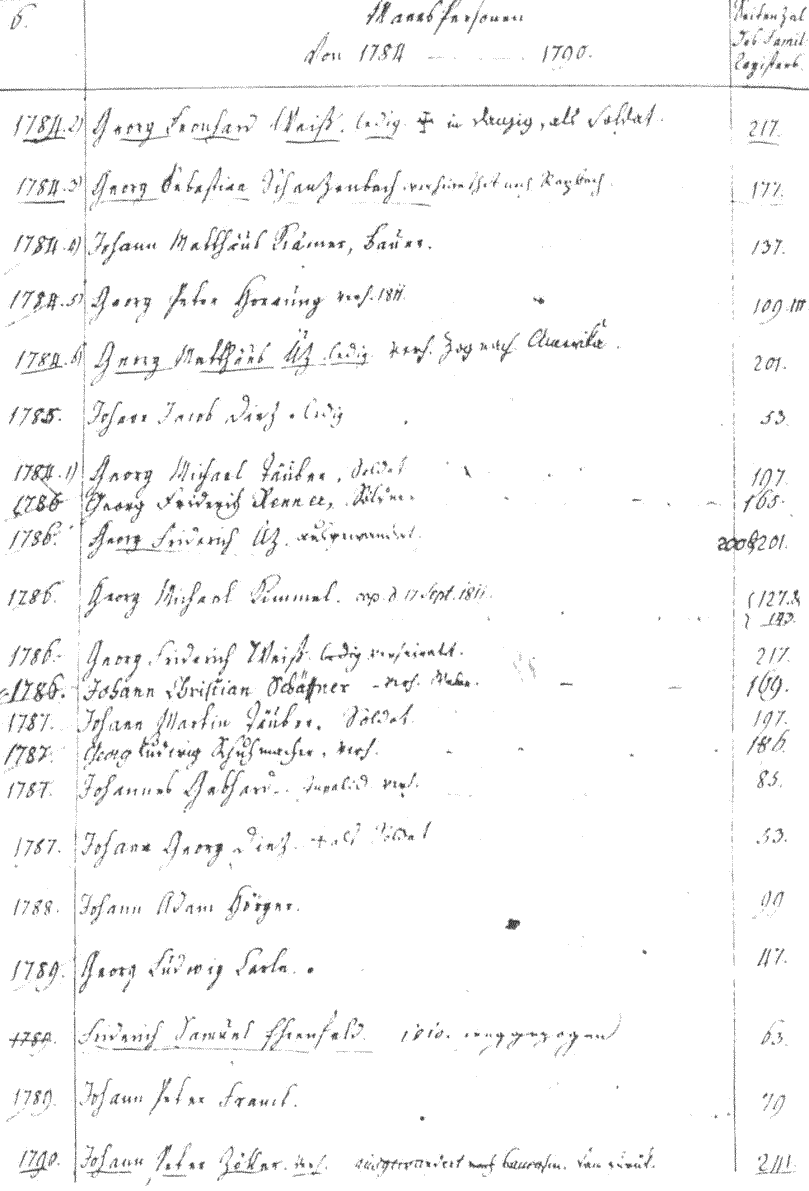 6. Manns Personen Seitenzal
Von 1784 — 1790. des Famil.
Registers.
1784. 2) Georg Leonhard Weiß. ledig. in Danzig, als Soldat. 217.
1784. 3) Georg Sebastian Schanzenbach. verheirathet nach 177.
1784. 4) Johann Matthäus Krämer, Bauer. 137.
1784. 5) Georg Peter Hornung verh. 1811. 109. III
1784. 6) Georg Matthäus Äz. ledig verh. Zog nach Amerika. 201.
1785. Johann Jacob Diez. ledig 53.
1784. 1) Georg Michael Täuber, Soldat 197.
1786 Georg Friderich Renner, Söldner. 165.
1786. Georg Friderich Äz. ausgewandert. 200 & 201.
1786. Georg Michael Kimmel. cop. d. 17 Sept. 1811. 127. &
143.
1786. Georg Friderich Weiß. ledig verheirathet. 217.
1786. Johann Christian Schäffner - verh. 169.
1787. Johann Martin Täuber. Soldat. 197.
1787. Georg Ludwig Schuhmacher. verh. 186.
1787. Johannes Gebhard. Invalid verh. 85.
1787. Johann Georg Diez. als Soldat 53.
1788. Johann Adam Hörger. 99
1789. Georg Ludwig Carle. 47.
1789. Friderich Samuel Ehrenfeld. 1810. weggezogen 63.
1789. Johann Peter Franck. 79
1790. Johann Peter Zoller. verh. ausgewandert nach kam zurück. 241.